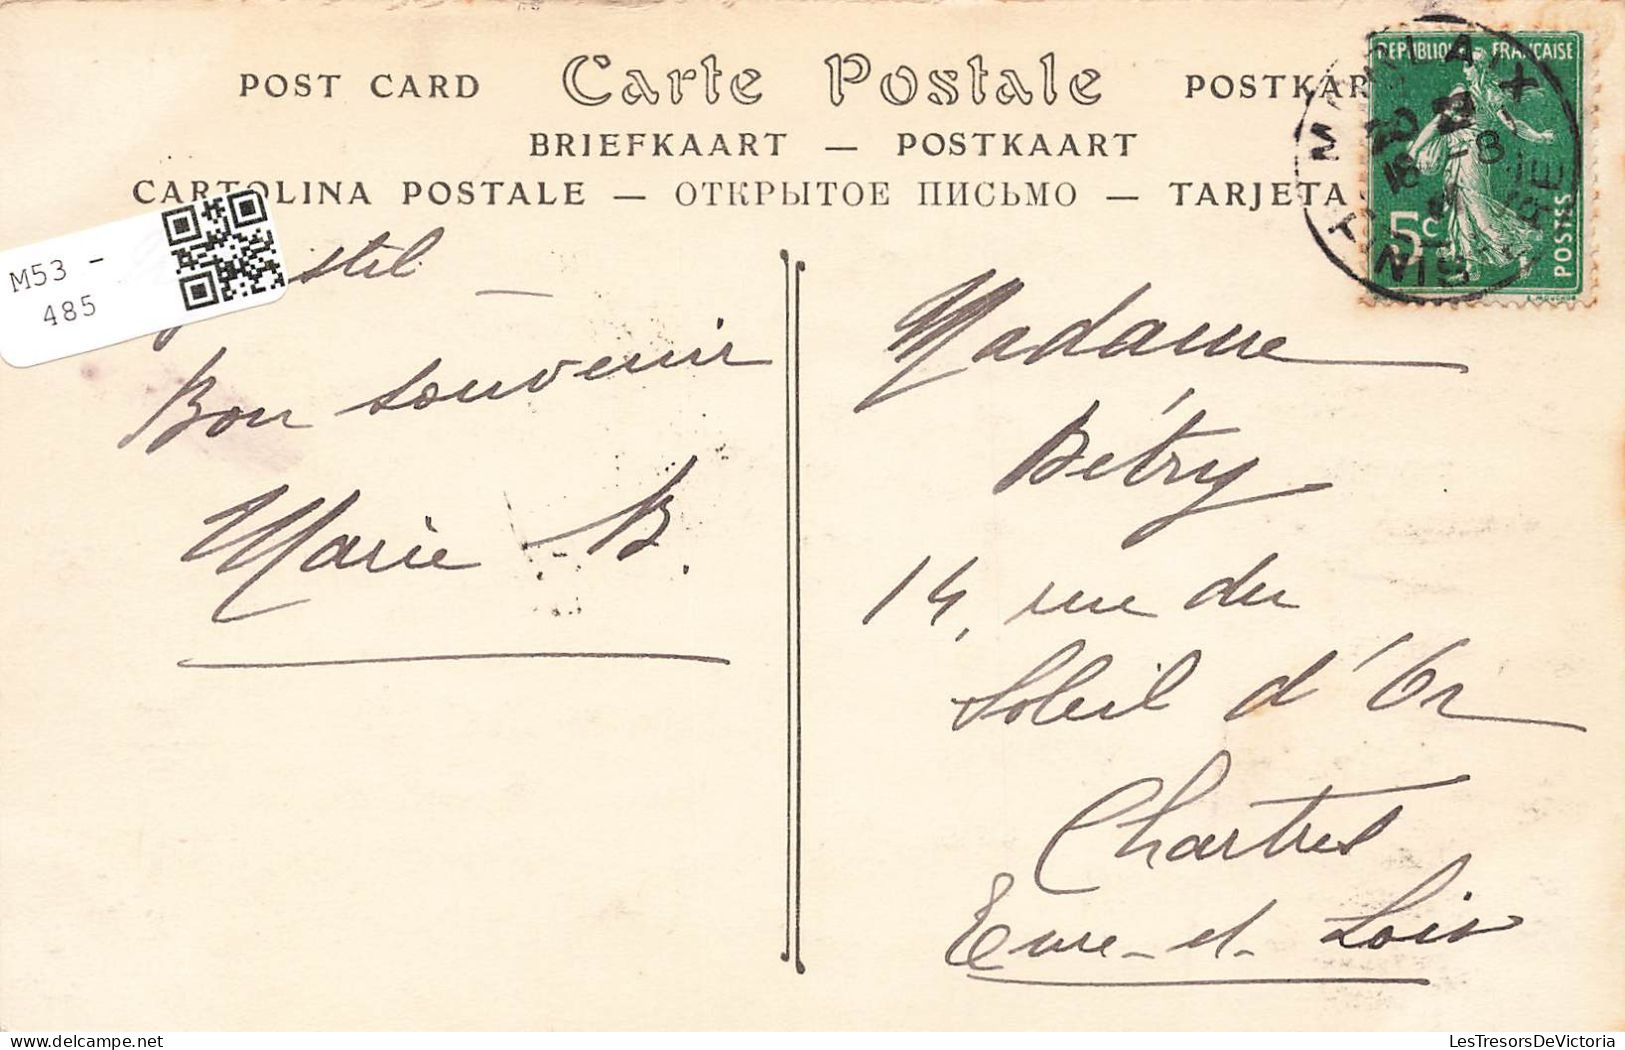 POST CARD Carte Postale POSTKAR
BRIEFKAART — POSTKAART
CARTOLINA POSTALE — ОТКРЫТОЕ ПИСЬМО — TARJETA
REPUBLIQUE FRANÇAISE
5c
POSTES
M53 -
485
Bon souvenir
Marie B.
Madame
Bétry
14, rue du
Soleil d'Or
Chartres
Eure-et-Loir
LesTresorsDeVictoria